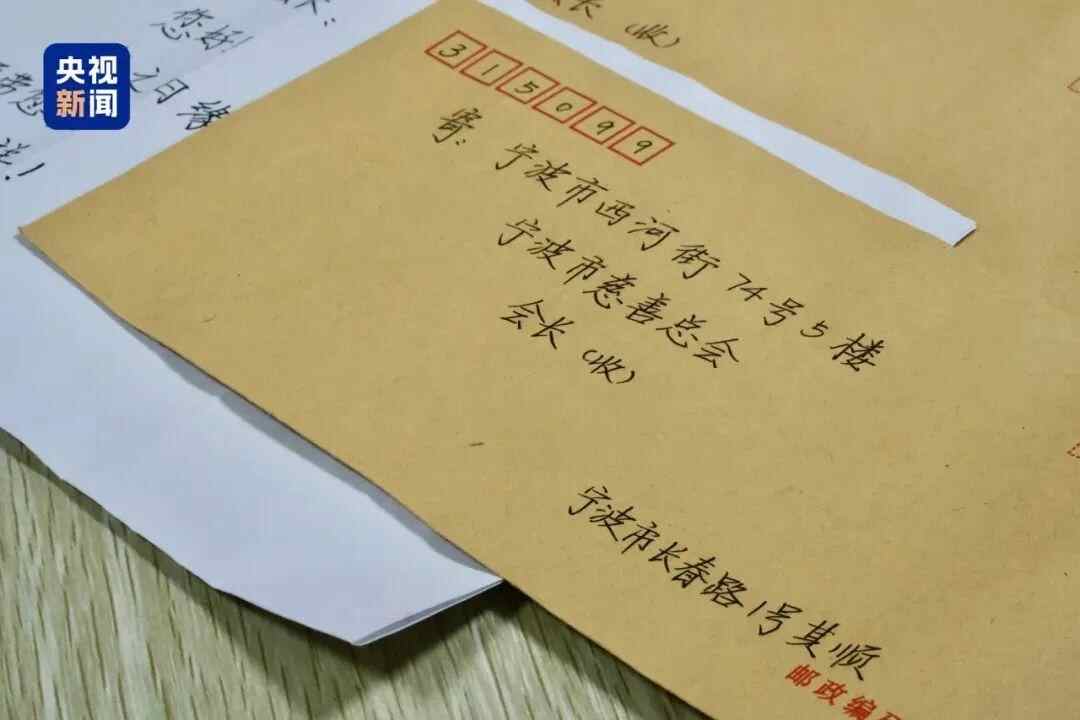 央视
新闻
您好!
之日
长(收)
315099
寄:宁波市西河街74号5楼
宁波市慈善总会
会长(收)
宁波市长春路1号其顺
邮政编